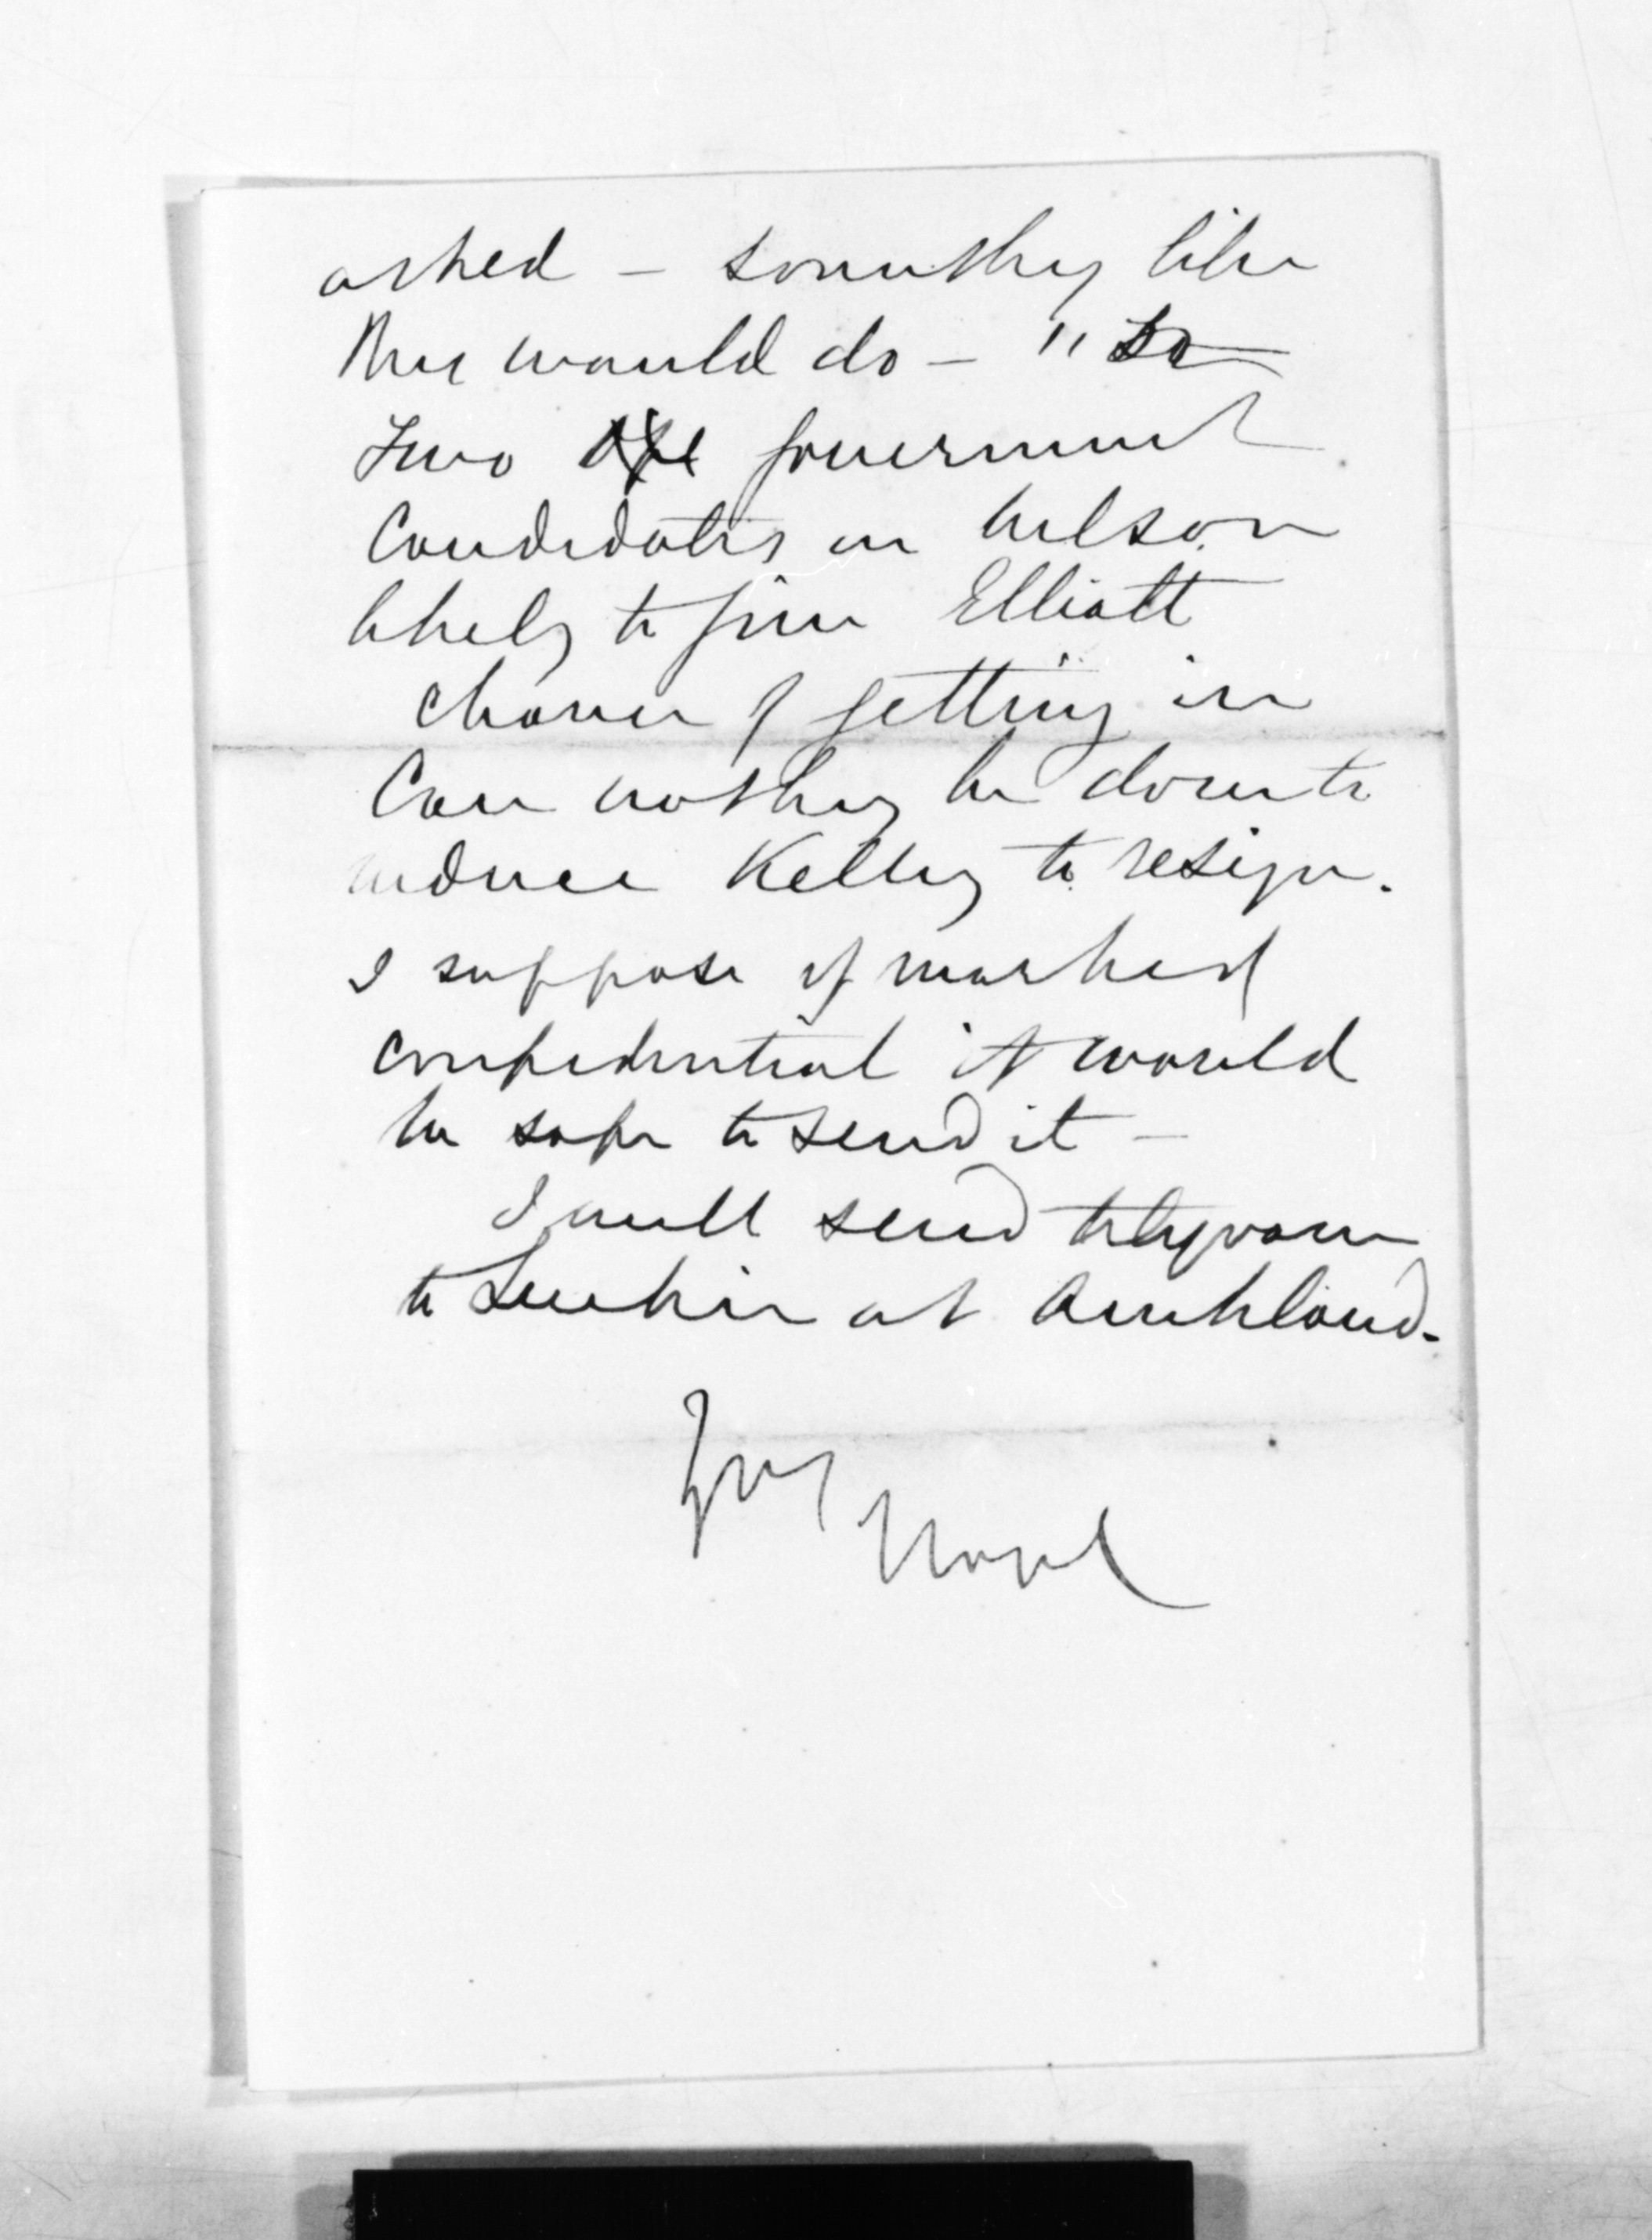 asked – something like
this would do – "So
Two government
Candidates in Nelson
likely to give Elliott
chance of getting in
Can nothing be done to
induce Kelling to resign.
I suppose if marked
confidential it would
be safe to send it –
I will send telegram
to Luckie at Auckland.